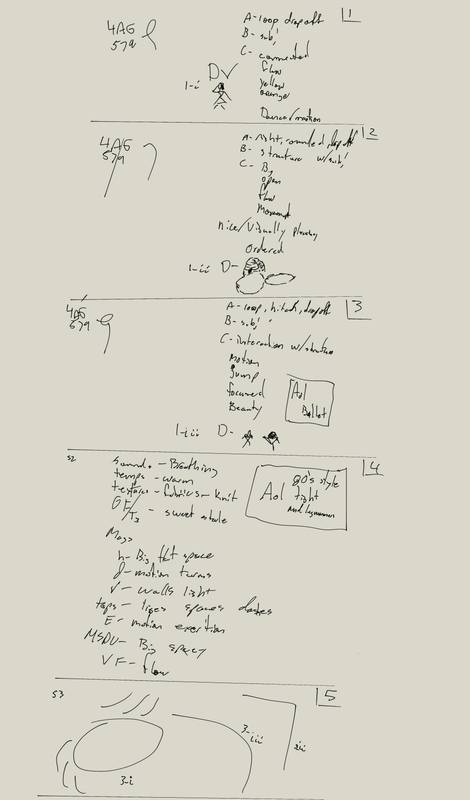 1
4AG
579
A-loop dropoff
B- sub,
C- connected
flow
yellow
orange
Dance/motion
1-i D√
2
4AG
579
A-right, rounded, dropoff
B- structure w/sub,
C- Big
open
flow
Movement
Nice/Visually pleasing
Ordered
1-ii D-
3
4AG
579
A-loop, hitch, dropoff
B-sub,
C-interaction w/structure
Motion
Jump
focused
Beauty
Aol
Ballet
1-iii D-
4
S2
Sounds - Breathing
temps - warm
textures - fabrics - knit
- sweet
Aol 90's style
tight
Mags
h- Big flat space
- motion turns
V- walls light
tops - lines spaces
E- motion exertion
Big spacey
VF- flow
5
S3
3-i
3-iii
3ii